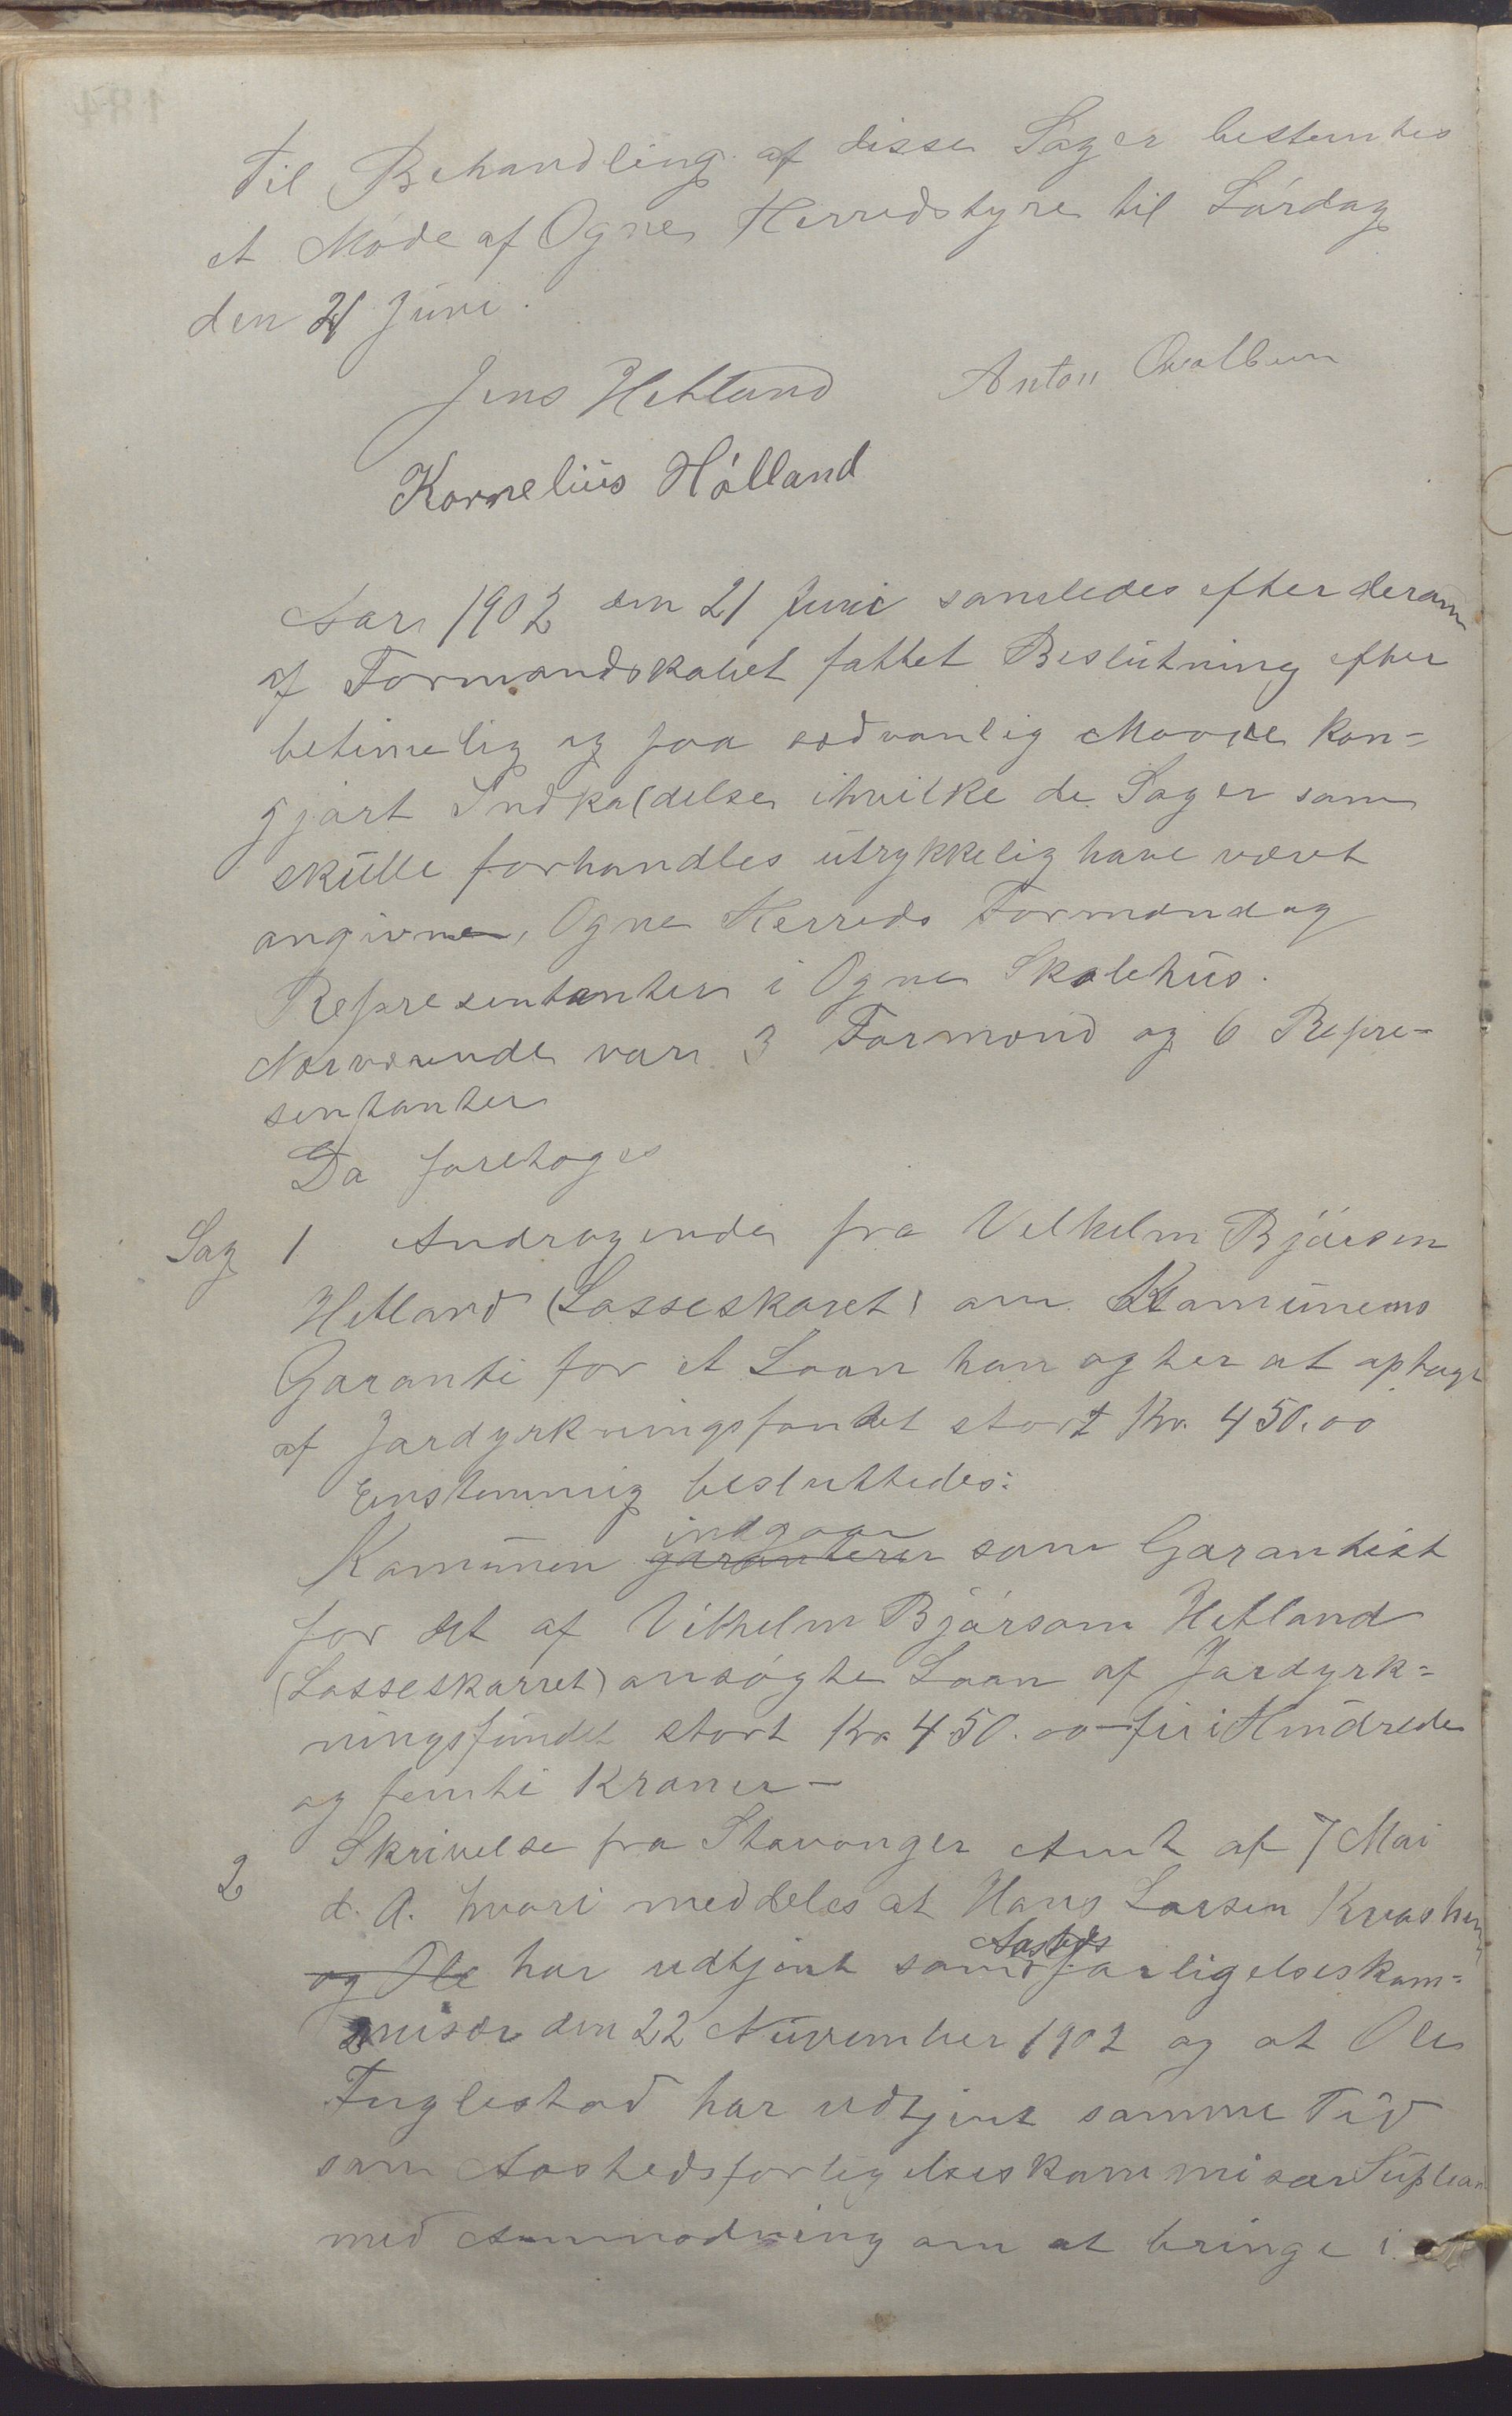 Til Behandling af disse Sager bestemtes
et Møde af Ogne Herredstyre til Lørdag
den 21 Juni.
Jens Hetland Anton
Kornelius Hølland
Aar 1902 den 21 Juni samledes efter derom
af Formandskabet fattet Beslutning efter
betimelig og paa sædvanlig Maade kon-
gjørt Indkaldelse ihvilke de Sager som
skulle forhandles utrykkelig have været
angivne, Ogne Herreds Formænd og
Repræsentanter i Ogne Skolehus.
Nærværende var 3 Formænd og 6 Repre-
sentanter
Da foretoges
Sag 1 Andragende fra Velhelm Bjørsen
Hetland (Lasseskaret) om Kamunens
Garanti for et Laan han agter at optage
af Jordyrkningsfondet stort Kr. 450.00
Enstemmig besluttedes:
indgaar
Kamunen garanterer som Garantist
for det af Vilhelm Bjørsom Hetland
(Lasseskarret) ansøgte Laan af Jordyrk=
ningsfundet stort Kr. 450.00 – fir i Hundrede
og femti Kroner –
2 Skrivelse fra Stavanger Amt af 7 Mai
d. A. hvori meddeles at Hans Larsen
Aasteds
og Ole har udtjent som forligelseskom=
misær den 22 November 1902 og at Ole
Fuglestad har udtjent samme Tid
som Aastedsforligelseskommisær Suplean
med Anmodning om at bringe i